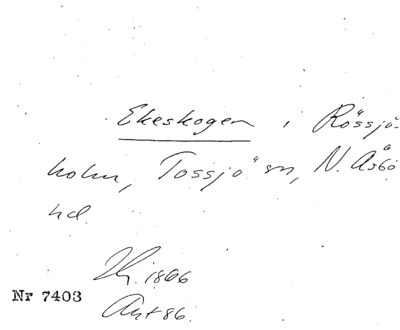 Ekeskogen i Rössjö-
holm, Tossjö sn, N. Åsbo
hd.
1866
Nr 7403